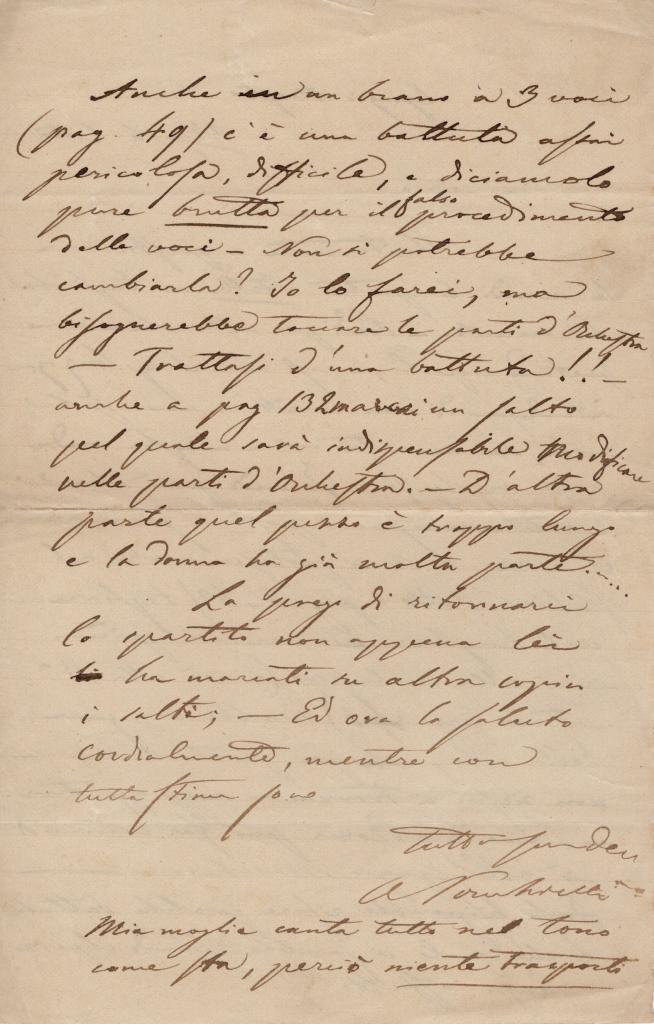 Anche in un brano a 3 voci
(pag. 49) c'è una battuta assai
pericolosa, difficile, e diciamolo
pure brutta per il falso procedimento
delle voci – Non si potrebbe
cambiarla? Io lo farei, ma
bisognerebbe toccare le parti d'Orchestra
– Trattasi d'una battuta!! –
anche a pag 132 un salto
pel quale sarà indispensabile modificare
nelle parti d'Orchestra. – D'altra
parte quel pezzo è troppo lungo
e la donna ha già molta parte.....
La prego di ritornarci
lo spartito non appena Lei
ha marcati su altra copia
i salti; – Ed ora la saluto
cordialmente, mentre con
tutta stima sono
tutto suo Dev
A Ponchielli
Mia moglie canta tutto nel tono
come sta, perciò niente trasporti